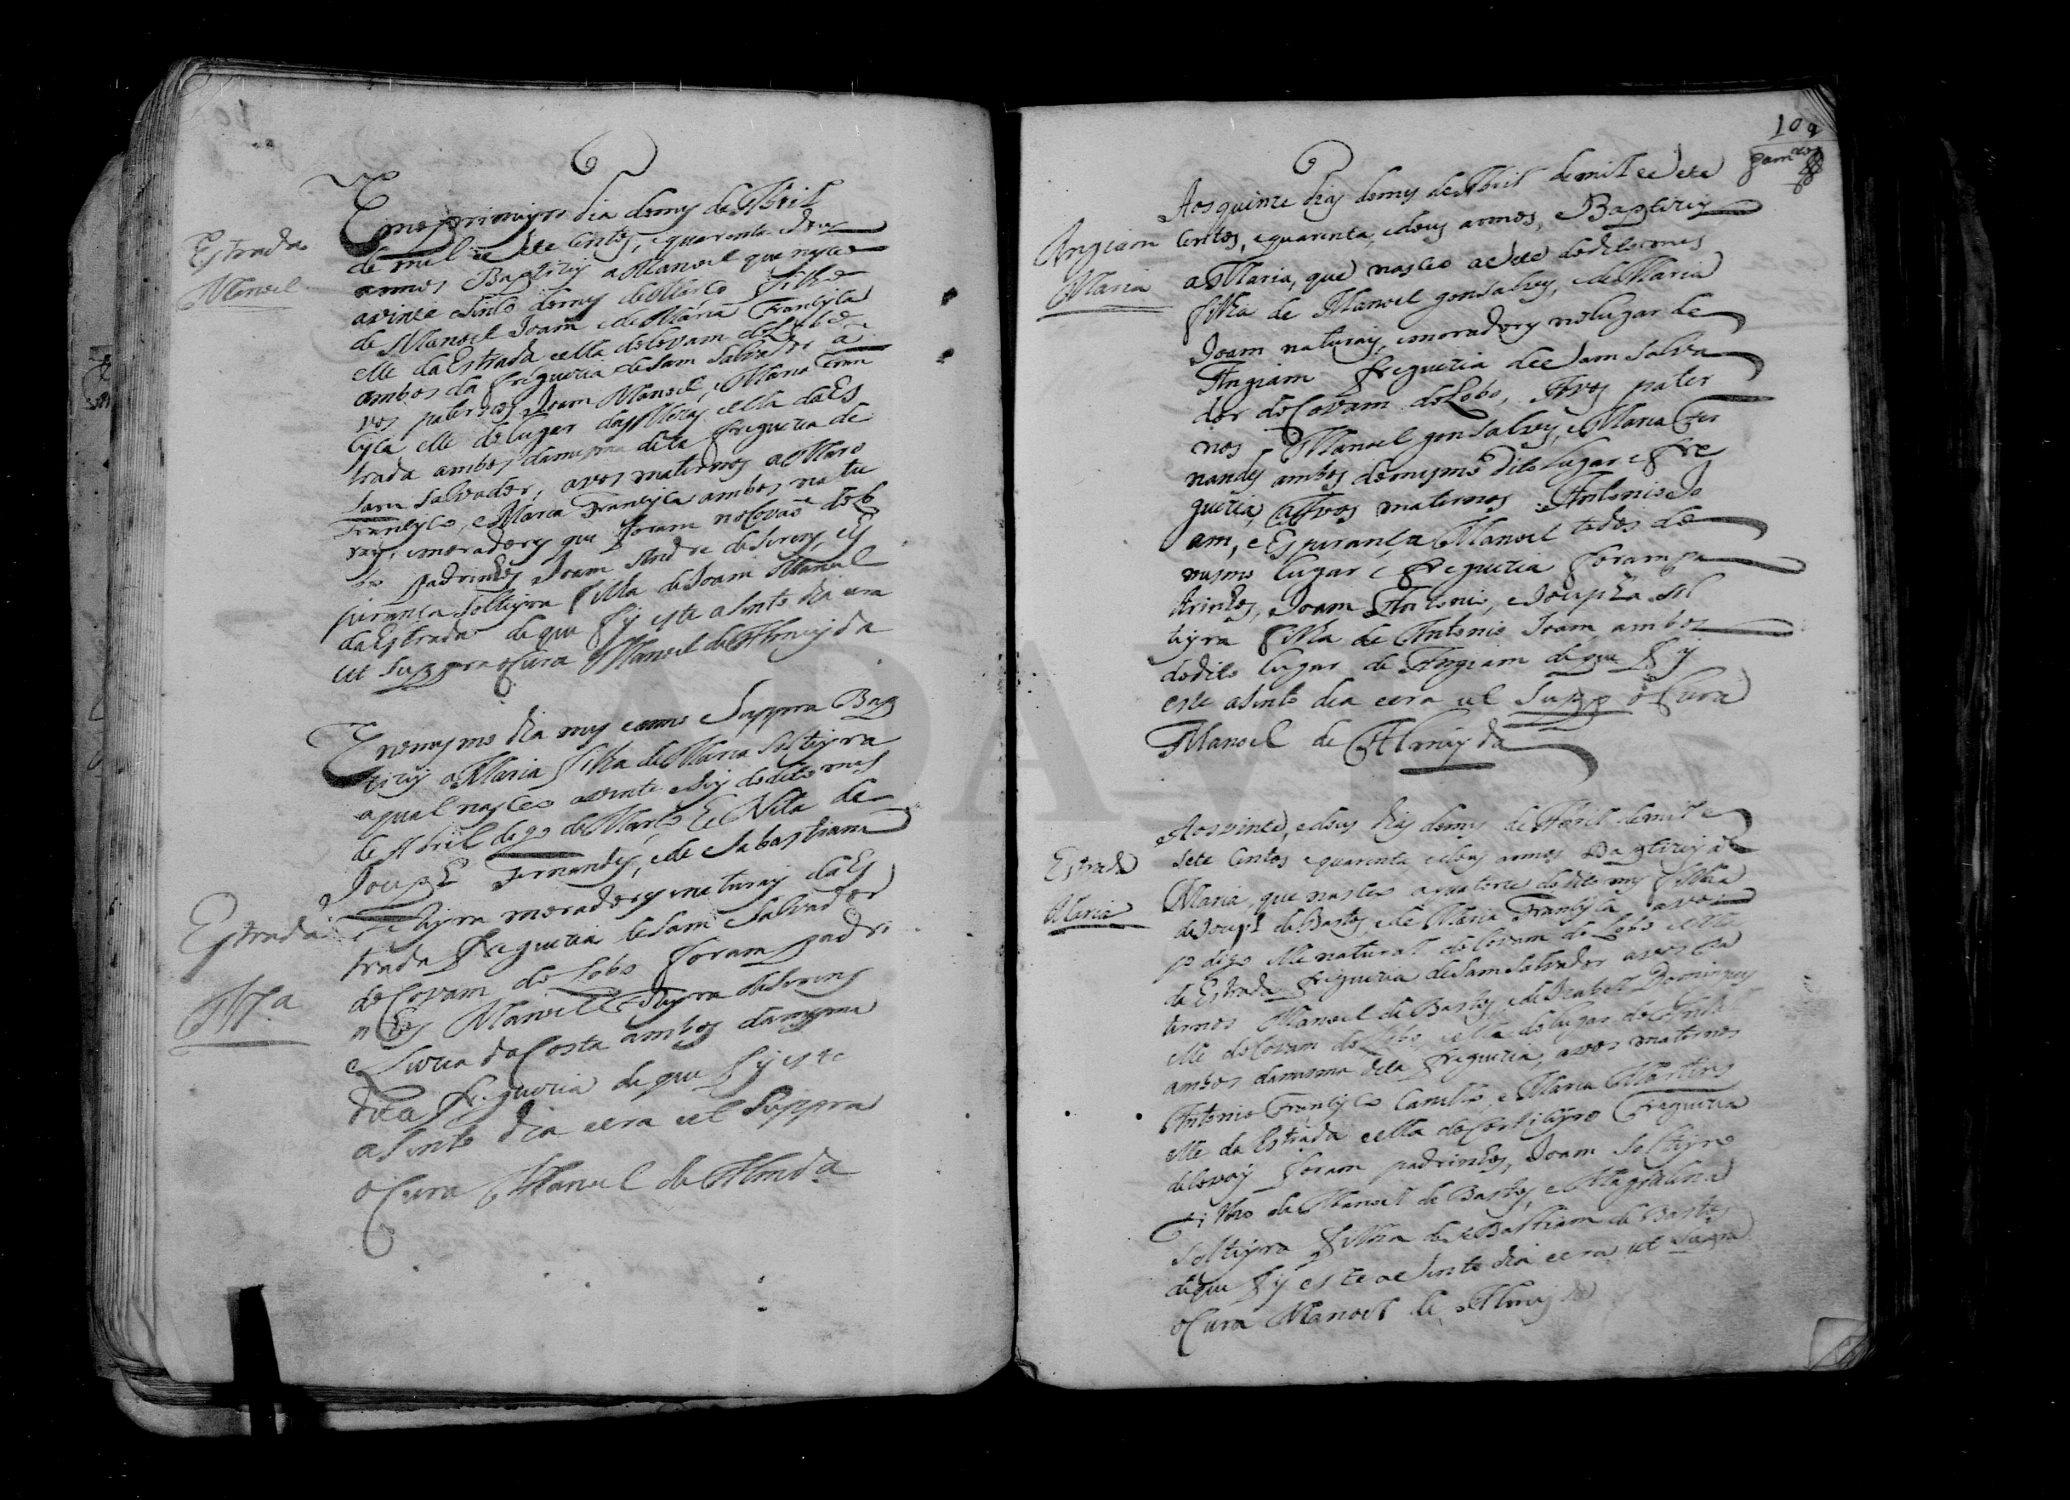 Estrada
Manoel
Em o primeyro dia do mes de Abril
de mil e sete centos, e quarenta e dous
annos Baptizey a Manoel que nasceo
a vinte e sinco do mes de Março filho
de Manoel Joam e de Maria Francisca
elle da Estrada e ella do Covam do Lobo
ambos da freguezia de Sam Salvador a
vos paternos Joam Manoel, e Maria Fran
cisca elle do lugar das e ella da Es
trada ambos da mesma dita freguezia de
Sam Salvador, avos maternos
Francisco, e Maria Francisca ambos natu
rais, e moradores que foram no Covaõ do Lo
bo padrinhos Joam Andre de Sirens, e Es
perança solteyra filha de Joam Manoel
da Estrada de que fis este asento dia era
ut supra o Cura Manoel de Almeyda
Estrada
Ma
Em o mesmo dia mes e anno supra Bap
tizey a Maria filha de Maria Solteyra
a qual nasceo a vinte e seis do dito mes
de Abril digo de Março he Neta de
Joseph Fernandes, e de Sabastiana
moradores e naturais da Es
trada freguezia de Sam Salvador
do Covam do Lobo foram padri
nhos Manoel de Sirens
e Luzia da Costa ambos da mesma
dita freguezia de que fis este
asento dia e era ut suppra
o Cura Manoel de Almda
109
Angiam
Maria
Aos quinze dias do mes de Abril de mil e sete
centos, e quarenta, e dous annos, Baptizey
a Maria, que nasceo a sete do dito mes
filha de Manoel gonsalves, e de Maria
Joam naturais, e moradores no lugar de
Angiam freguezia de Sam Salva
dor do Covam do Lobo, Avos pater
nos Manoel gonsalves, e Maria Fer
nandes ambos do mesmo dito lugar e fre
guezia, e Avos maternos Antonio Jo
am, e Esperança Manoel todos do
mesmo lugar e freguezia foram pa
drinhos, Joam Antonio, e Josepha sol
teyra filha de Antonio Joam, ambos
do dito lugar de Angiam de que fis
este asento dia e era ut supp o Cura
Manoel de Almeyda
Estrada
Maria
Aos vinte, e dous dias do mes de Abril de mil e
sete centos e quarenta e dous annos Baptizey a
Maria, que nasceo a quatorze do dito mes filha
de Joseph de Bastos, e de Maria Francisca
digo elle natural do Covam do Lobo e ella
da Estrada freguezia de Sam Salvador avos pa
ternos Manoel de Bastos e de Izabel Domingues
elle do Covam do Lobo e ella do lugar de
ambos da mesma dita freguezia, avos maternos
Antonio Francisco e Maria Martins
elle da Estrada e ella de freguezia
foram padrinhos, Joam solteyro
filho de Manoel de Bastos, e Magdalena
solteyra filha de Bastiam de Bastos
de que fis este asento dia e era ut supra
o Cura Manoel de Almeyda